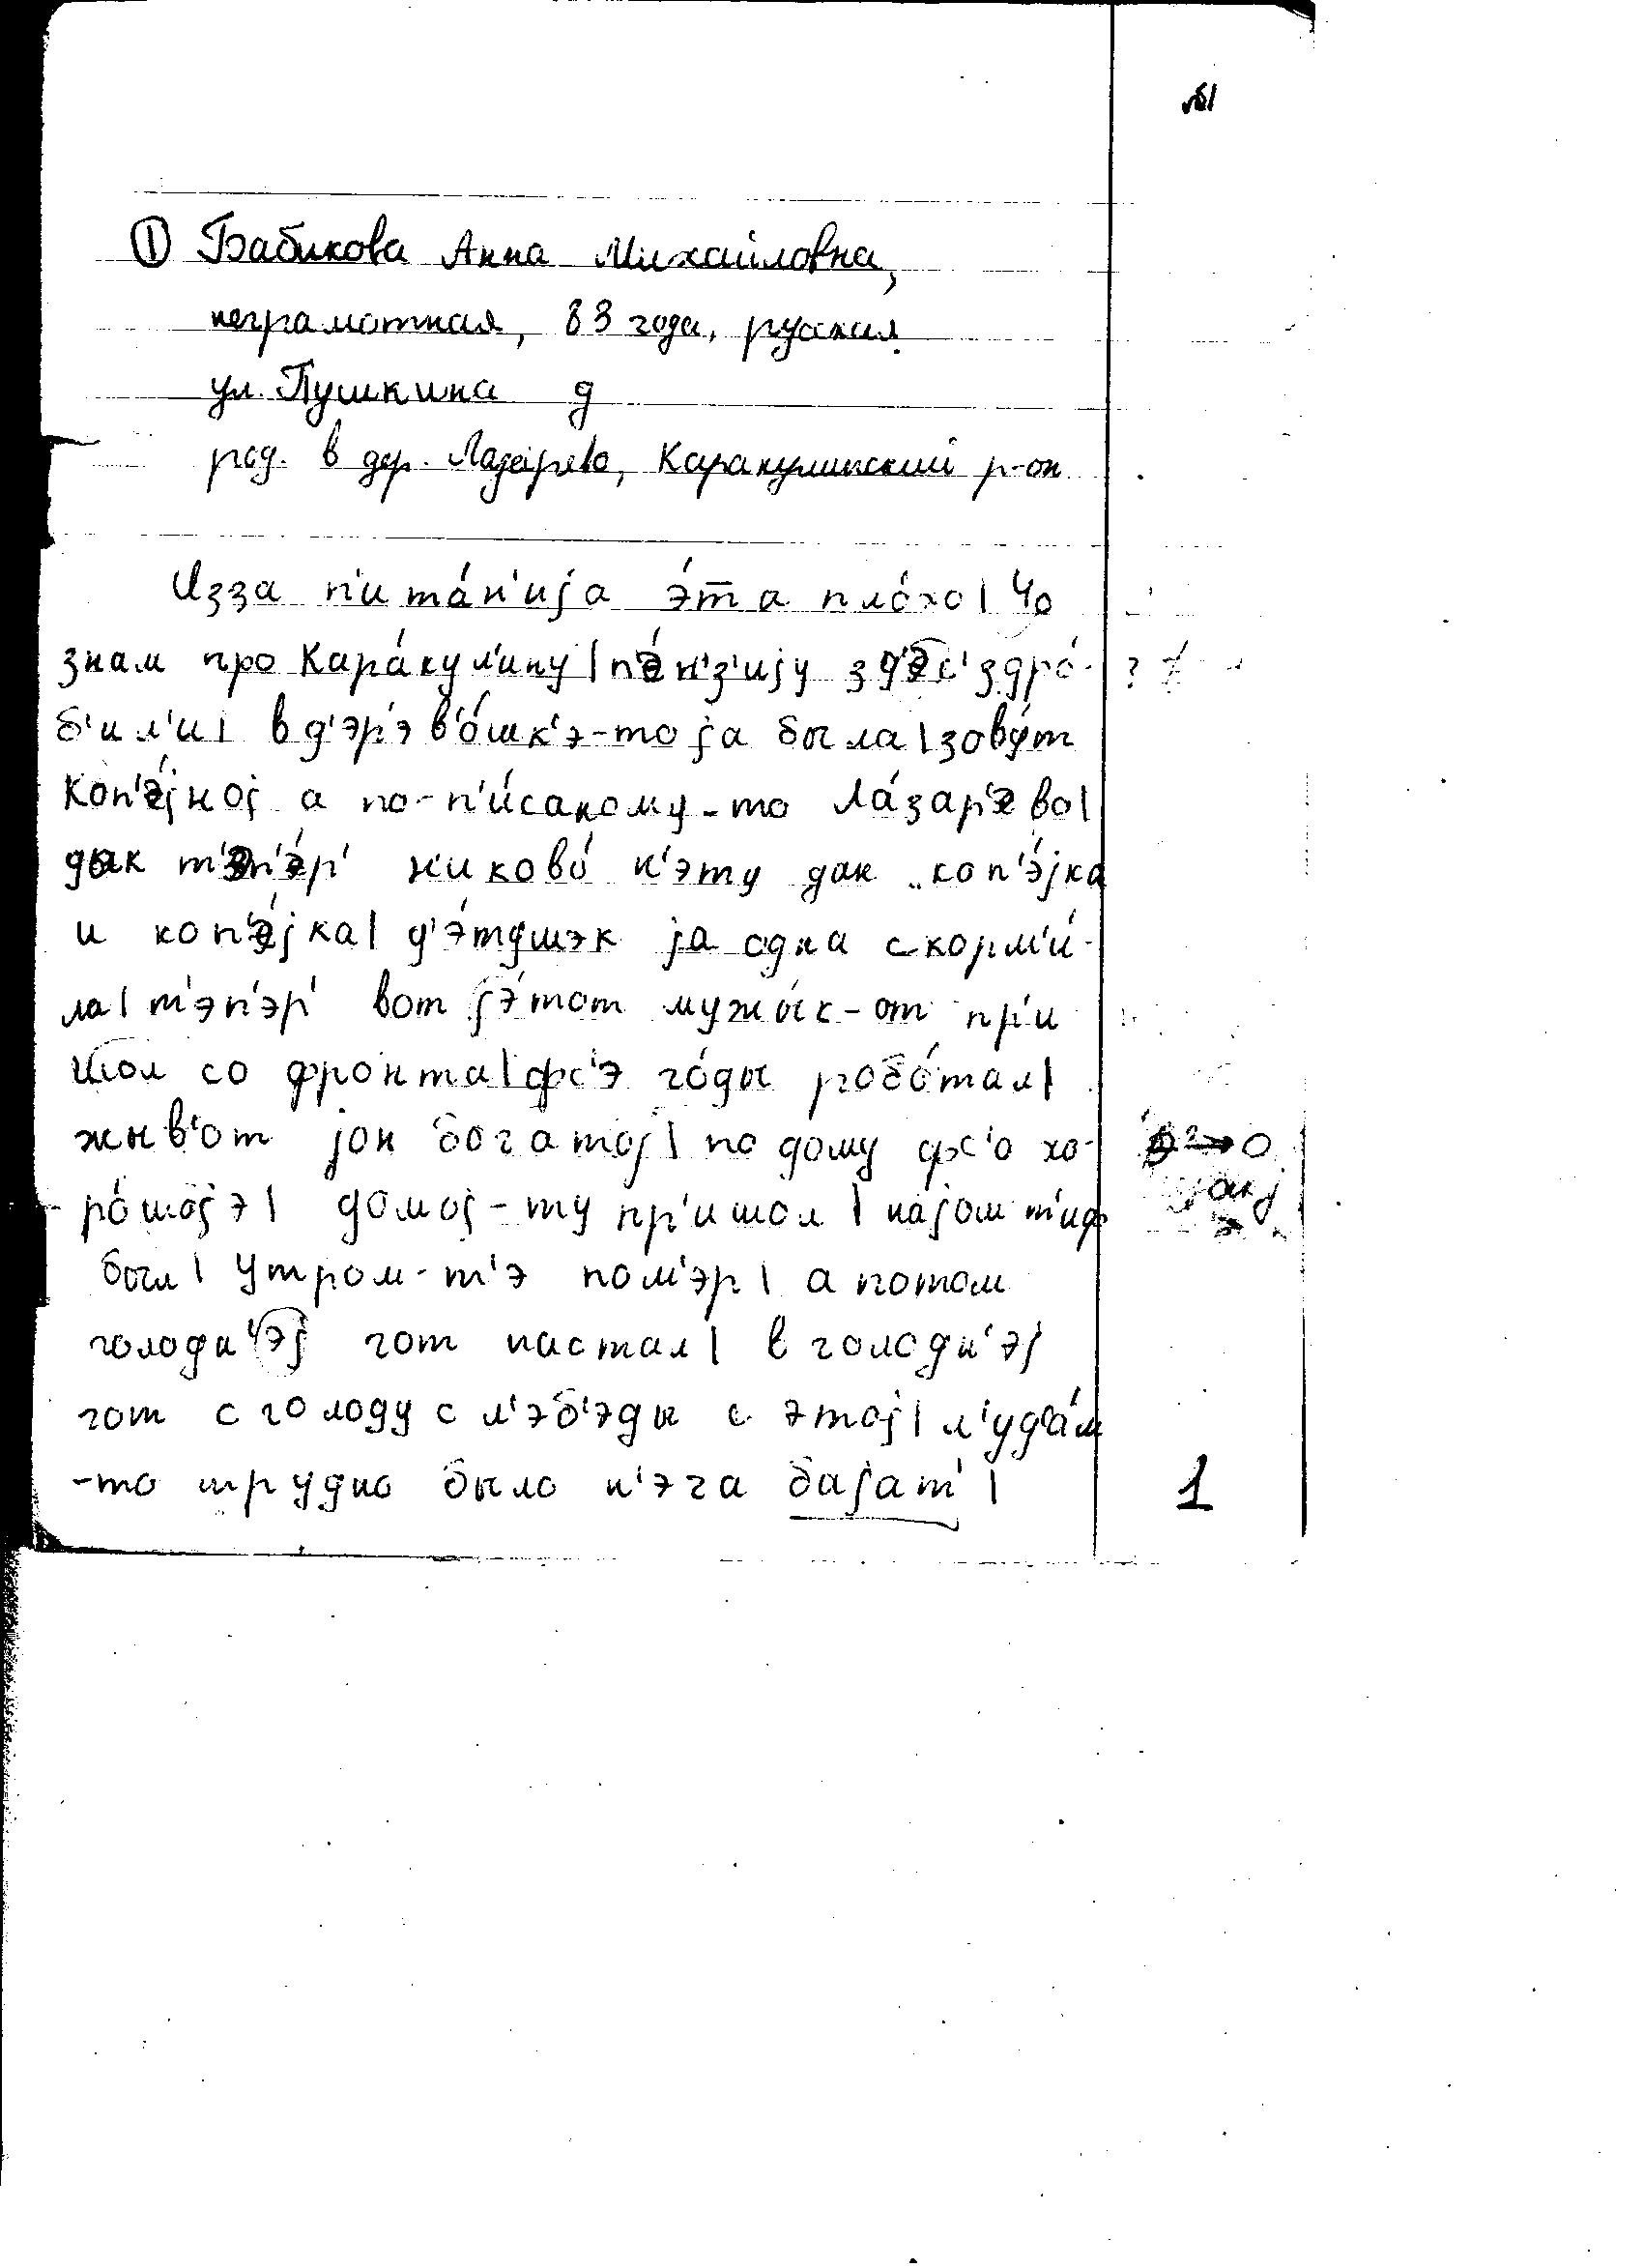 №1
① Бабикова Анна Михайловна,
неграмотная, 83 года, русская
ул. Пушкина д
род. в дер. Лазарево, Каракулинский р-он
Изза п'ита́н'иjа э́т̅а пло́хо| Чо
знам про Кара́кул'ину| пэ́н'з'иjу зд'эс' здро́-
б'ил'и| в д'эр'эв'о́шк'э-то jа была| зову́т
Коп'э́jноj а по-п'и́саному-то Ла́зар'эво|
дак т'эп'э́р' н'иково́ н'эту дак „коп'э́jка
и коп'э́jка| д'э́тушэк jа одна скорм'и́-
ла| т'эп'эр' вот jэ́тот мужы́к-от пр'и
шол со фронта| фс'э го́ды робо́тал|
жыв'от jон богатоj| по дому фс'о хо-
ро́шоjэ| домоj-ту пр'ишол | наjош т'иф
был| Утром-т'э пом'эр| а потом
голодн'эj гот настал| в голодн'эj
гот с голоду с л'эб'эды с этоj| л'уд'а́м
-то трудно было н'эга баjат' |
? 
→ о
1